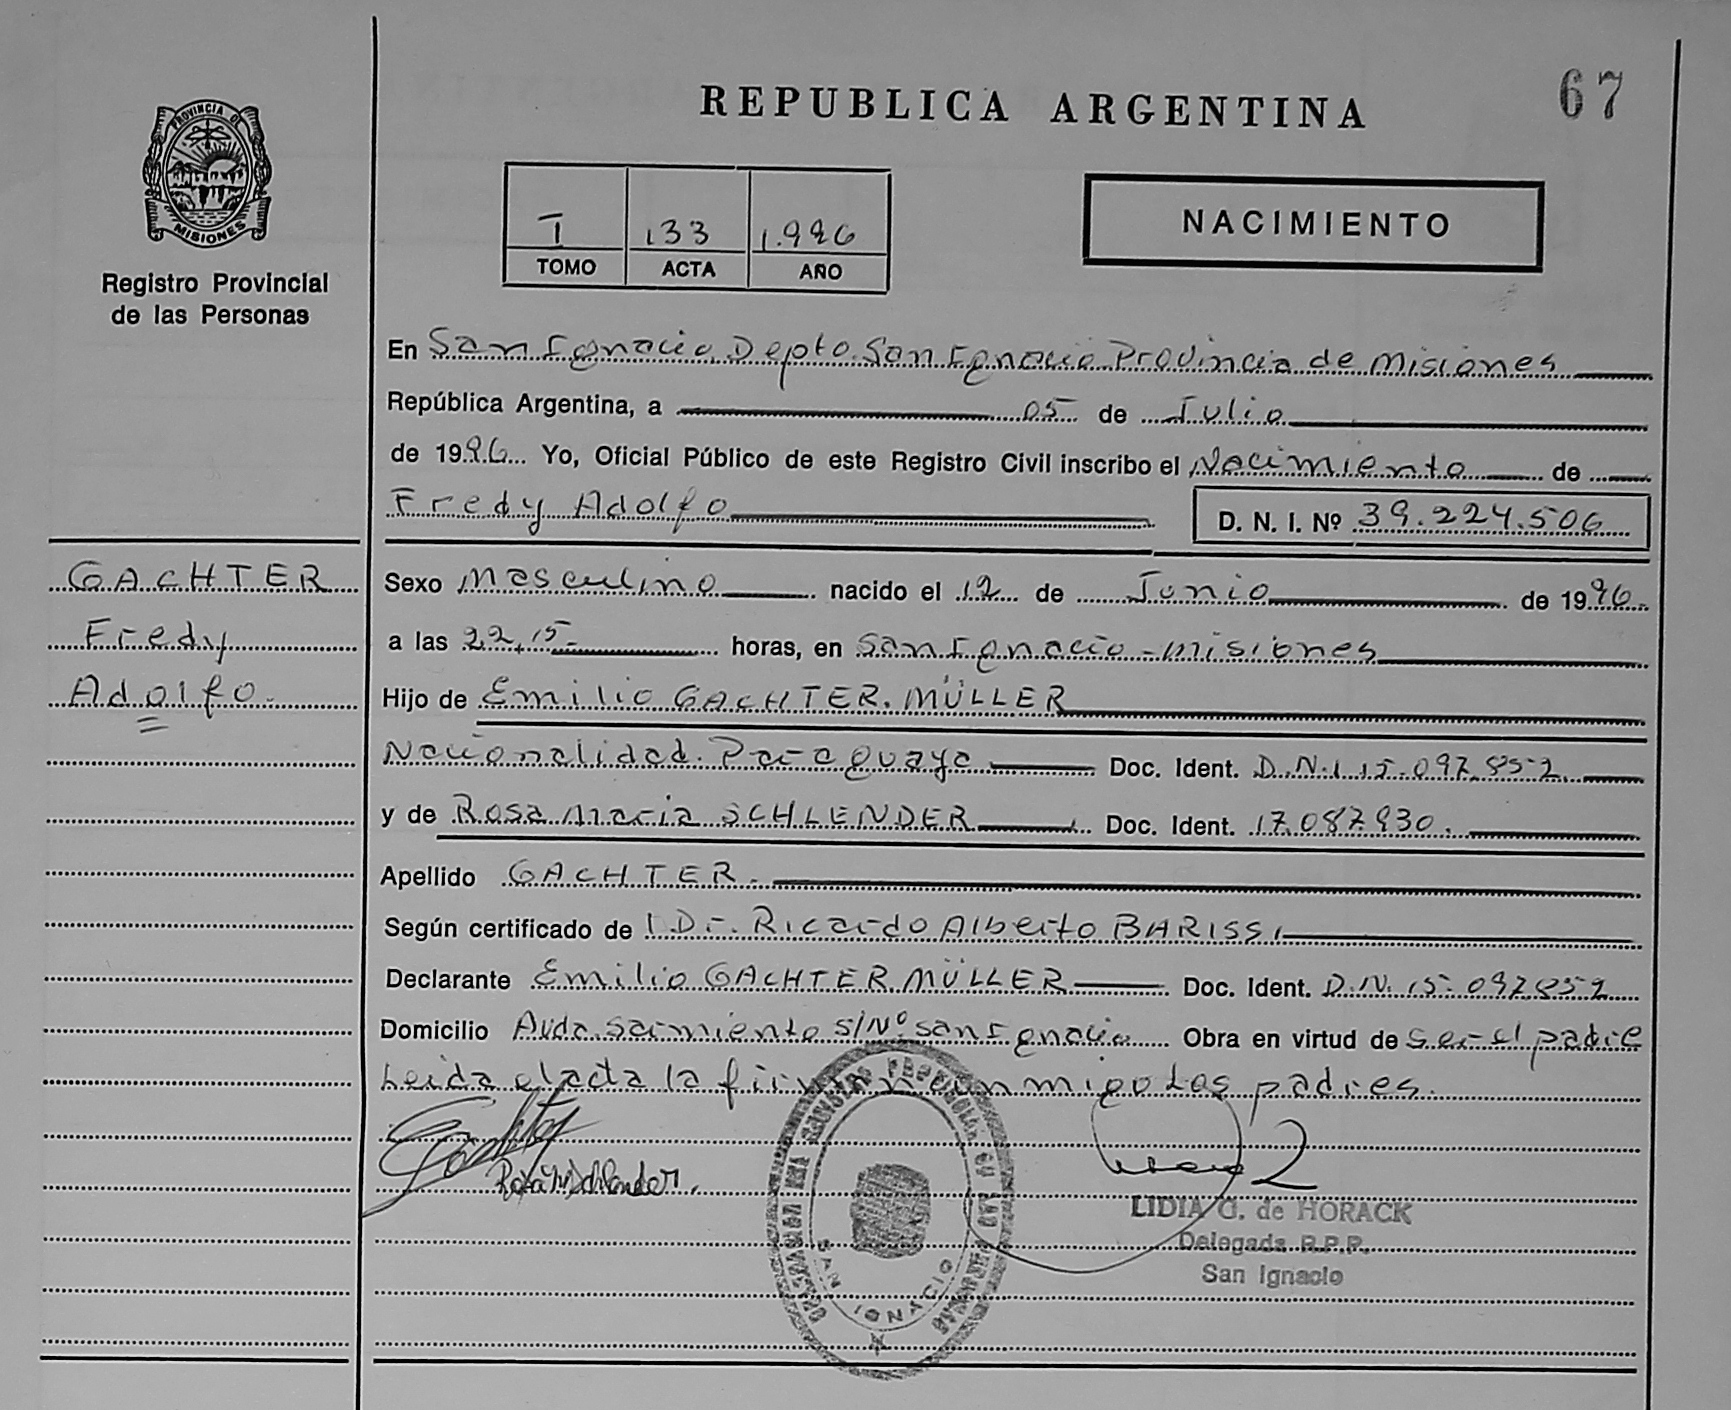 67
REPUBLICA ARGENTINA
PROVINCIA DE
MISIONES
Registro Provincial
de las Personas
I 133 1.996
TOMO ACTA AÑO
NACIMIENTO
En San Ignacio Depto. San Ignacio Provincia de Misiones
República Argentina, a 05 de Julio
de 1996 Yo, Oficial Público de este Registro Civil inscribo el Nacimiento de
Fredy Adolfo D. N. I. Nº 39.224.506
GACHTER
Fredy
Adolfo.
Sexo Masculino nacido el 12 de Junio de 1996.
a las 22,15- horas, en San Ignacio - Misiones
Hijo de Emilio GACHTER. MÜLLER
Nacionalidad. Paraguaya Doc. Ident. D.N.I 15.097.852
y de Rosa Maria SCHLENDER Doc. Ident. 17.087.930.
Apellido GACHTER.
Según certificado de Dr. Ricardo Alberto BARISSI
Declarante Emilio GACHTER MÜLLER Doc. Ident. D.N. 15.097.852
Domicilio Avda. Sarmiento S/Nº San Ignacio Obra en virtud de Ser el padre
Leida el acta la firman conmigo Los padres.
LIDIA G. de HORACK
Delegada R.P.P.
San Ignacio
SAN IGNACIO